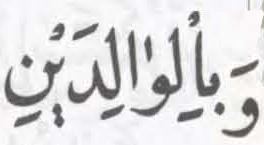 وَبِالْوٰالِدَيْنِ